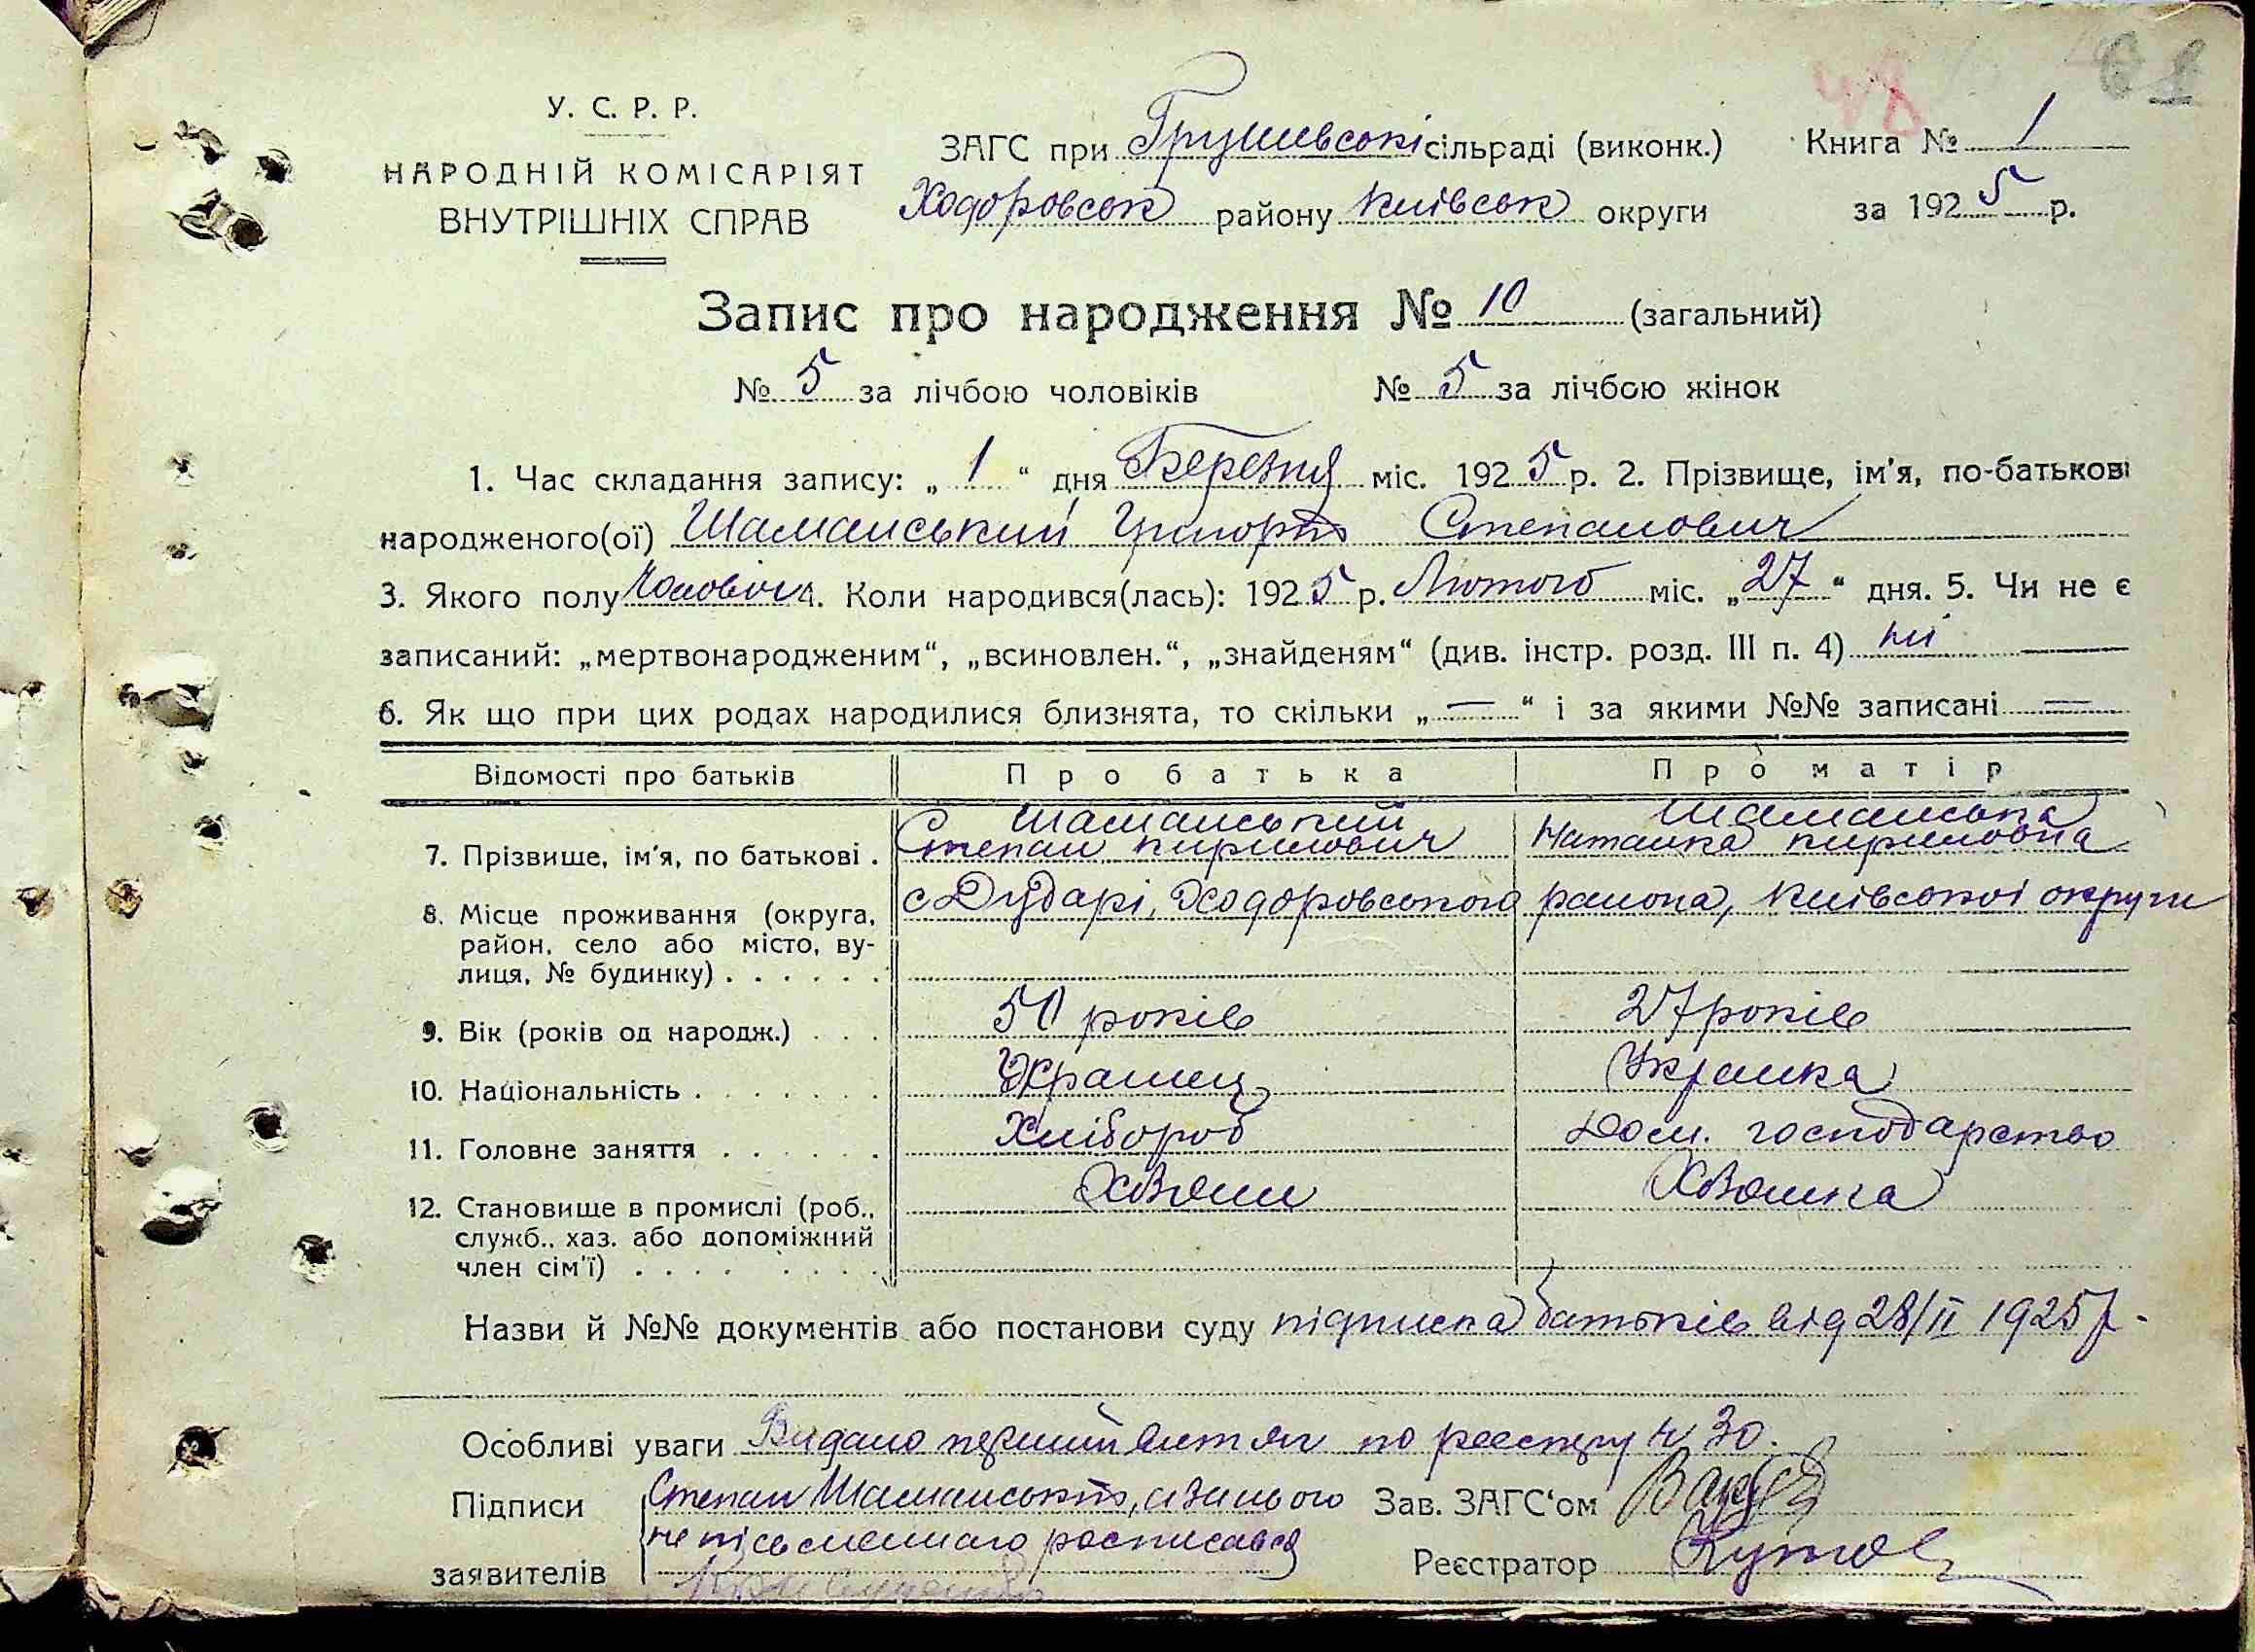 48 61
У. С. Р. Р.
НАРОДНІЙ КОМІСАРІЯТ
ВНУТРІШНІХ СПРАВ
ЗАГС при Грушевські сільраді (виконк.) Книга № 1
Ходоровськ району Київськ округи за 1925 р.
Запис про народження № 10 (загальний)
№ 5 за лічбою чоловіків № 5 за лічбою жінок
1. Час складання запису: „ 1 “ дня Березня міс. 1925 р. 2. Прізвище, ім'я, по-батькові
народженого(ої) Шаманський Григорій Степанович
3. Якого полу Чоловіч 4. Коли народився(лась): 1925 р. Лютого міс. „ 27 “ дня. 5. Чи не є
записаний: „мертвонародженим“, „всиновлен.“, „знайденям“ (див. інстр. розд. III п. 4) ні
6. Як що при цих родах народилися близнята, то скільки „ — “ і за якими №№ записані —
Відомості про батьків Про батька Про матір
Шаманський Шаманська
7. Прізвище, ім'я, по батькові . Степан Кирилович Наталка Кириловна
8. Місце проживання (округа, с Дударі, Ходоровського района, Київської округи
район, село або місто, ву-
лиця, № будинку) . . . . . .
9. Вік (років од народж.) . . . 50 років 27 років
10. Національність . . . . . . . Украінец Украінка
11. Головне заняття . . . . . . Хлібороб Дом. господарство
12. Становище в промислі (роб., Хазяїн Хазяїнка
служб., хаз. або допоміжний
член сім'ї) . . . . . . . .
Назви й №№ документів або постанови суду підписка батьків від 28/II 1925 р.
Особливі уваги Видано перший витяг по реєстру № 30.
Підписи Степан Шаманський, а за нього Зав. ЗАГС'ом
неписьменного росписався
заявителів Реєстратор